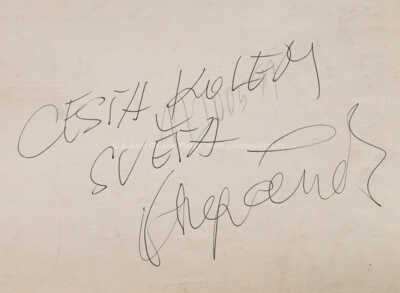 CESTA KOLEM
SVĚTA